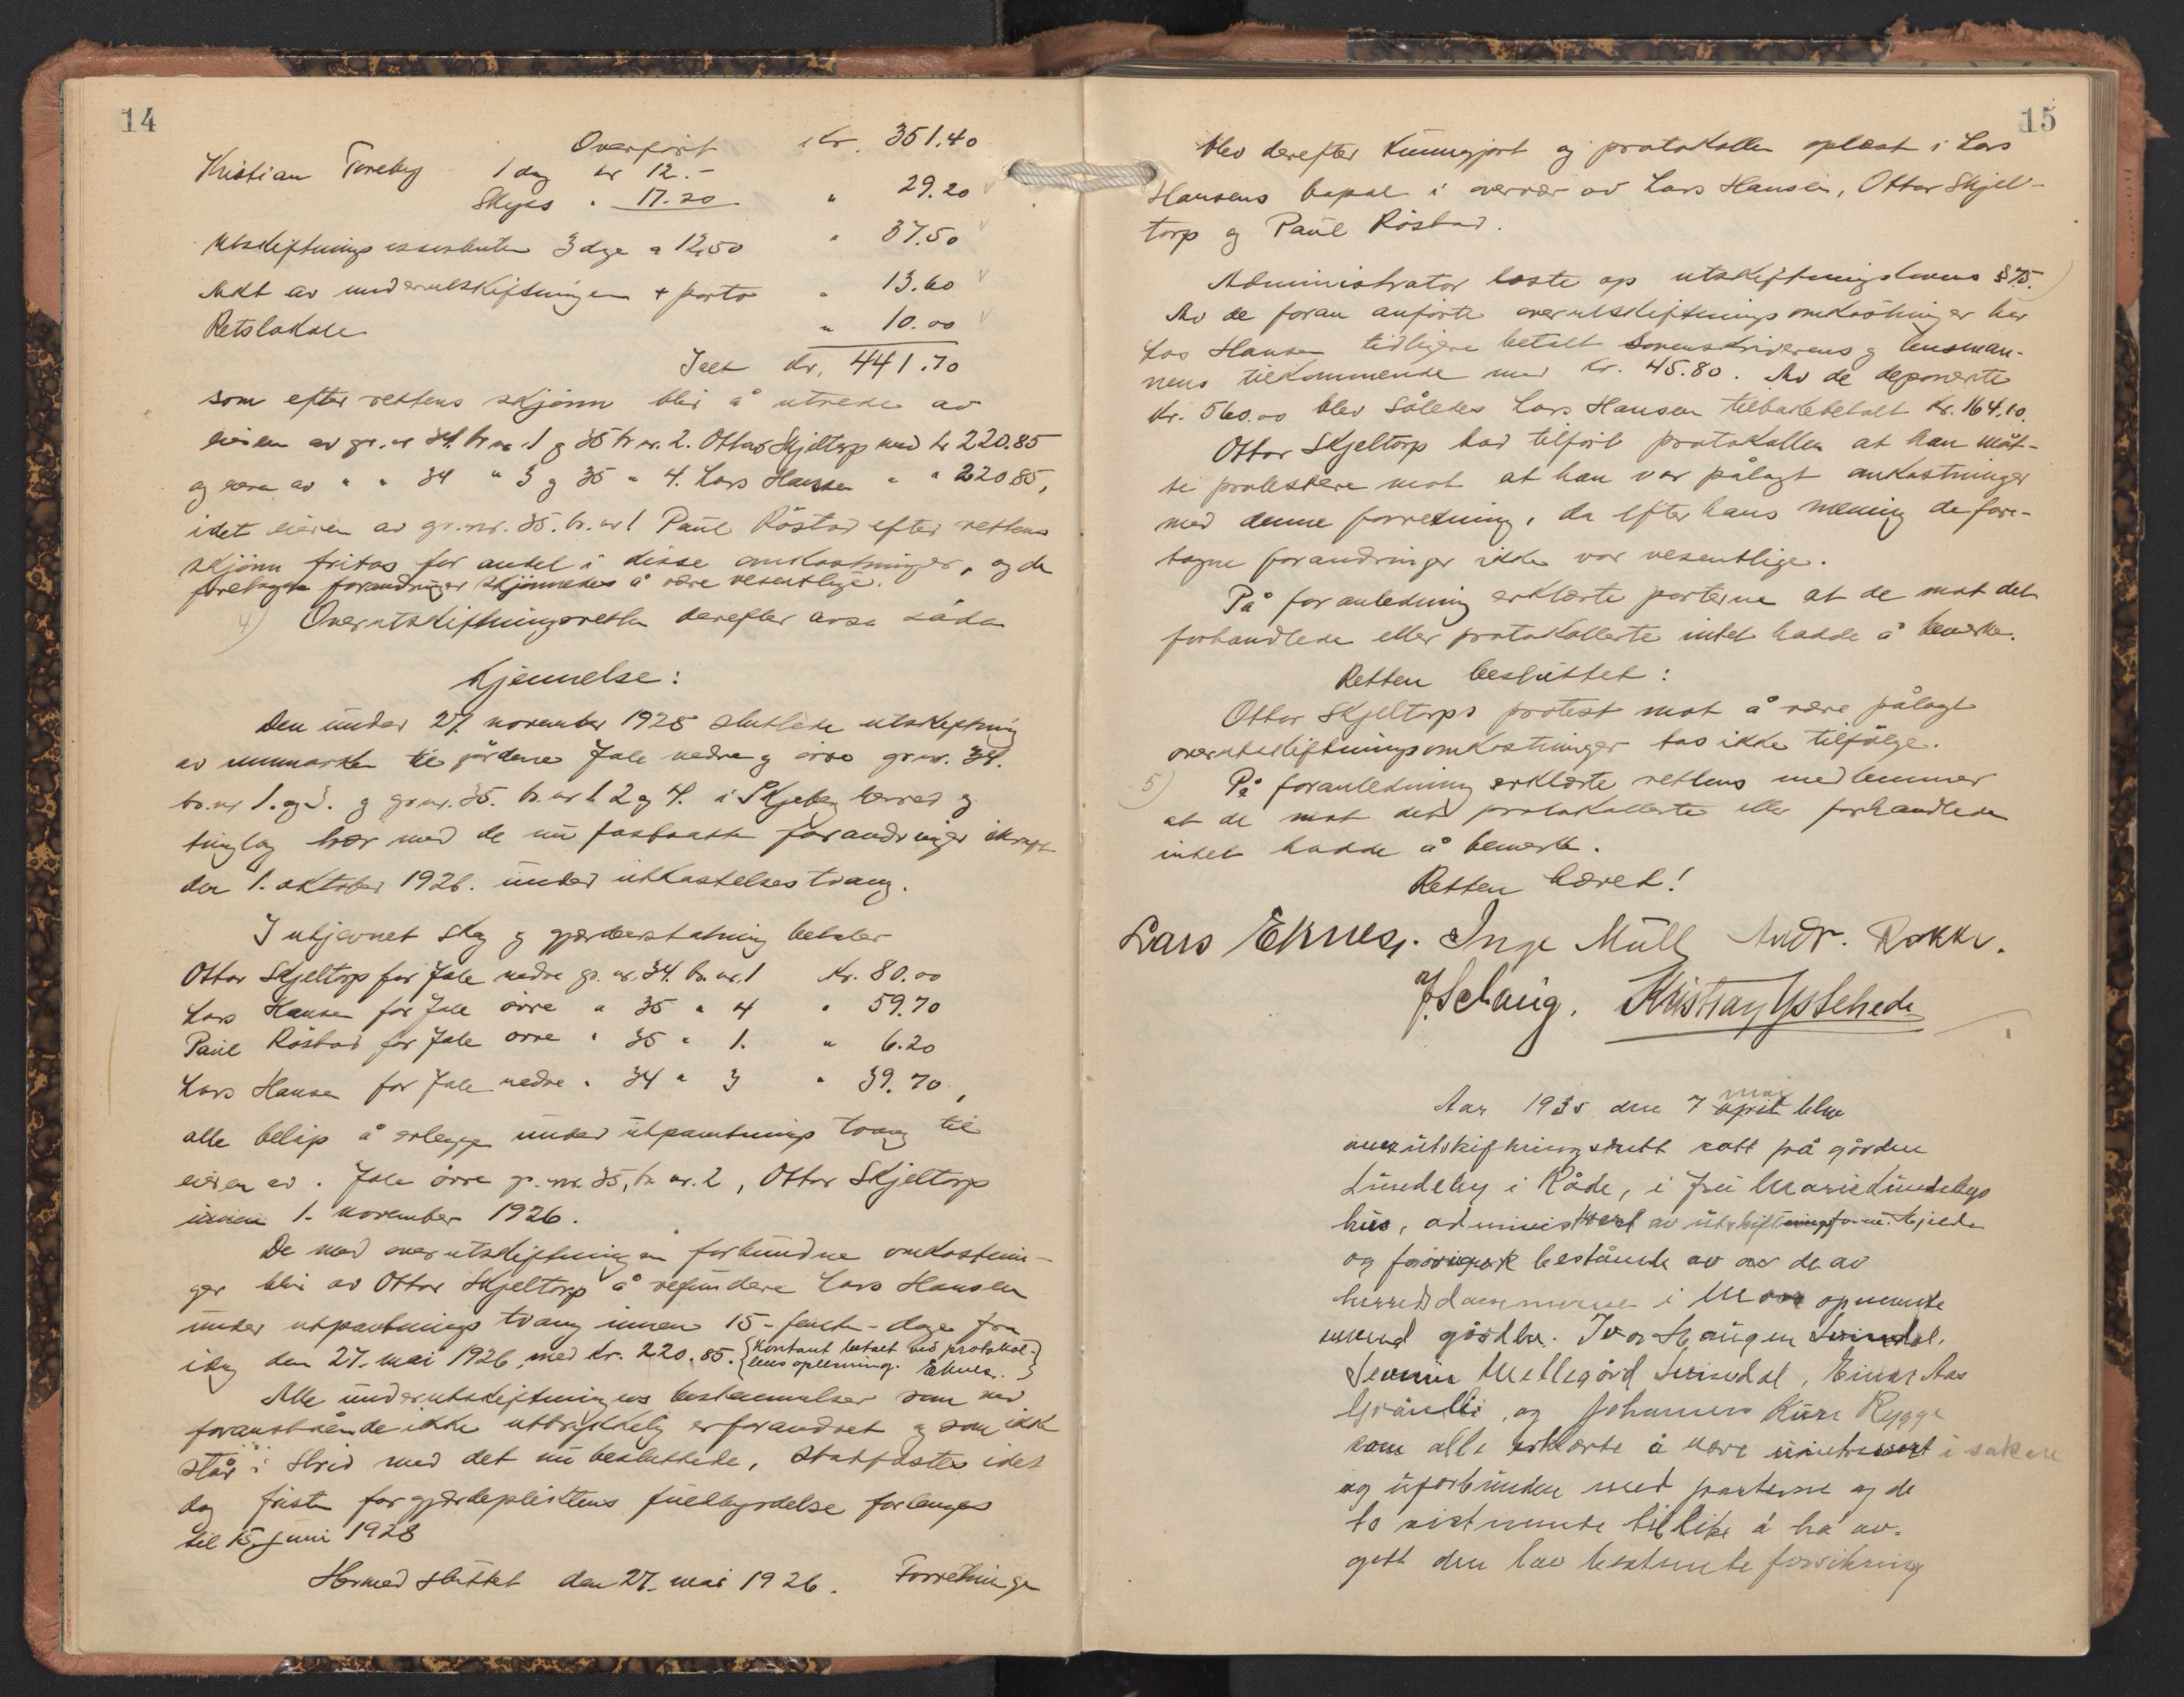 14
Overført Kr. 351.40
Kristian Toreby 1 dag kr 12.-
Skyss " 17.20 " 29.20
Utskiftningsassistenten 3 dage a 12,50 " 37.50
Utskt av underutskiftningen + porto " 13.60
Retslokale " 10.00
Ialt Kr. 441.70
som efter rettens skjønn blir å utrede av
eieren av gr.nr 34 br.nr. 1 og 35 br.nr. 2. Ottar Skjeltorp med kr 220.85
og eieren av " " 34 " 3 og 35 " 4. Lars Hansen " " 220.85,
idet eieren av gr.nr. 35. br.nr 1 Paul Røstad efter rettens
skjønn fritas for andel i disse omkostninger, og de
foretagne forandringer skjønnedes å være vesentlige.
4) Overutskiftningsretten derefter avsa sådan
Kjennelse:
Den under 27. november 1925 sluttede utskiftning
av innmarken til gårdene Jale nedre og øvre gr.nr. 34.
br.nr 1. og 3. og gr.nr. 35. br.nr 1 2 og 4. i Skjeberg herred og
tinglag bør med de nu fastsatte forandringer
den 1. oktober 1926. under utkastelsestvang.
I utjevnet skog og gjerdeerstatning betaler
Ottar Skjeltorp for Jale nedre gr.nr. 34. br.nr. 1 Kr. 80.00
Lars Hansen for Jale øvre " 35 " 4 " 59.70
Paul Røstad for Jale øvre " 35 " 1. " 6.20
Lars Hansen for Jale nedre " 34 " 3 " 39.70,
alle beløp å erlegge under utpantnings tvang til
eieren av . Jale øvre gr.nr. 35, br.nr. 2, Ottar Skjeltorp
innen 1. november 1926.
De med overutskiftningen forbundne omkostnin-
ger blir av Ottar Skjeltorp å refundere Lars Hansen
under utpantnings tvang innen 15-femten-dage fra
idag den 27. mai 1926, med kr. 220.85. {Kontant betalt ved protokol-
lens oplesning. Eknes.}
Alle underutskiftningens bestemmelser som ved
foranstående ikke uttrykkelig er forandret og som ikke
står i strid med det nu besluttede, stadfæstes idet
dog fristen for gjerdepliktens fuldbyrdelse forlenges
til 15. juni 1928
Hermed sluttet den 27. mai 1926. Forretningen
15
blev derefter kunngjort og protokollen oplæst i Lars
Hansens bopæl i overvær av Lars Hansen, Ottar Skjel-
torp og Paul Røstad.
Administrator læste op utskiftningslovens § 75.
Av de foran anførte overutskiftnings omkostninger har
Lars Hansen tidligere betalt Sorenskriverens og lensman-
nens tilkommende med kr. 45.80. Av de deponerte
Kr. 560.00 blev således Lars Hansen tilbakebetalt Kr. 164.10.
Ottar Skjeltorp bad tilført protokollen at han måt-
te protestere mot at han var pålagt omkostninger
med denne forretning, da efter hans mening de fore-
tagne forandringer ikke var vesentlige.
På foranledning erklærte parterne at de mot det
forhandlede eller protokollerte intet hadde å bemerke.
Retten besluttet:
Ottar Skjeltorps protest mot å være pålagt
overutskiftningsomkostninger tas ikke tilfølge.
5) På foranledning erklærte rettens medlemmer
at de mot det protokollerte eller forhandlede
intet hadde å bemerke.
Retten hævet!
Lars Eknes. Inge Müll Andr. Rokke.
J. Schaug. Kristian Ystehede
Aar 1935 den 7 april mai blev
overutskiftningsrett satt på gården
Lundeby i Råde, i fru Marie Lundebys
hus, administrert av utskiftningsform. Kjelde
og forøvrig bestående av de av
herredsdommeren i Moss opnevnte
menn gårdbr. Ivar Haugen Svindal,
Mellegård Svindal, Einar Aas
og Johannes Kure Rygge
som alle erklærte å være uinteressert i saken
og uforbunden med parterne og de
to sistnevnte tillike å ha av-
gitt den lovbestemte forsikring